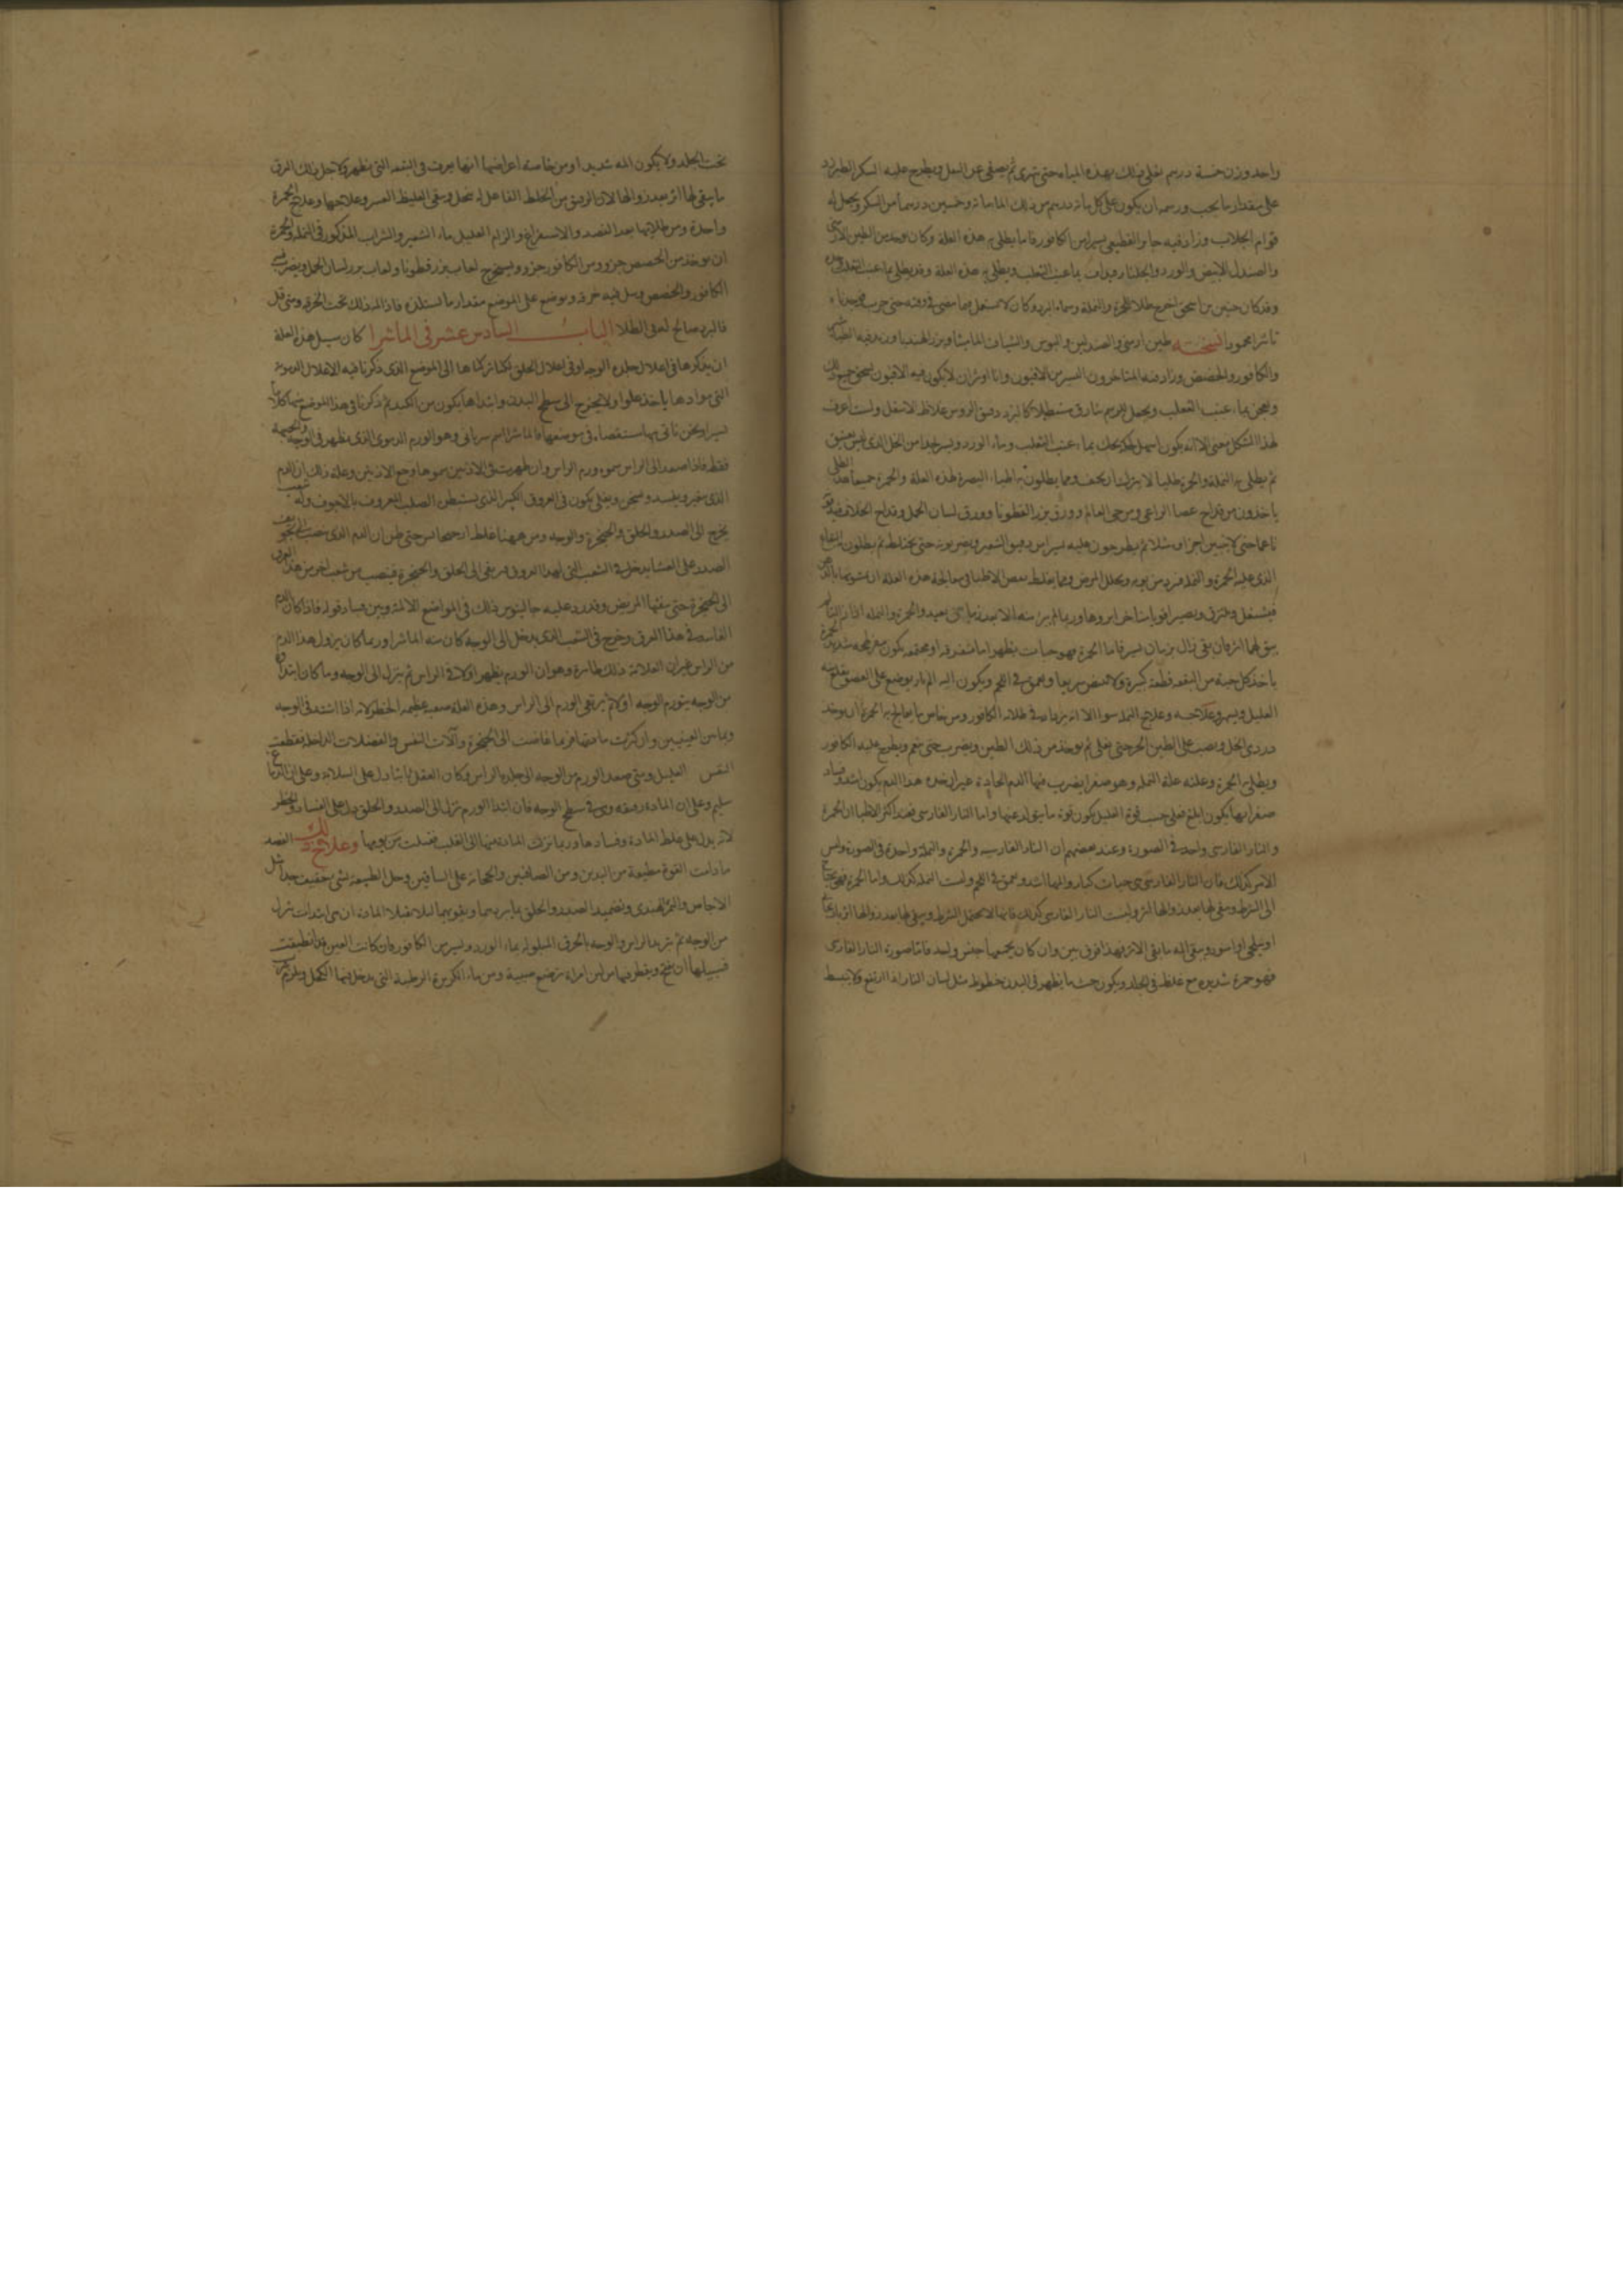 واحد وزن خمسة درهم تغلى ذلك بهذه المياه حتى تهرى ثم يصفى عن الثفل ويطرح عليه السكر الطبرزد
على مقدار ما يجب ورسمه ان يكون على كل مائة درهم من ذلك الماء مائة وخمسين درهما من السكر ويجعل له
قوام الجلاب وزاد فيه القطيعى يسير من الكافور فاما يطلى به هذه العلة وكان يوخذ من الطين الارمنى
والصندل الابيض والورد والجلنار فيداف بماء عنب الثعلب ويطلى به هذه العلة وقد يطلى بماء عنب الثعلب وحده
وقد كان حنين بن اسحق اخرج طلا للحمرة والنملة وسماه البرد وكان لا يستعمل فيما مضى فى وقته حتى جرب فوجدنا له
تاثيرا محمودا نسخته طين ارمنى والصندلين والبوش والشياف الماميثا وبزر الهندبا وزيد فيه
والكافور والحضض وزاد فيه المتاخرون اليسير من الافيون وانا اوثر ان لا يكون فيه الافيون يسحق جميع ذلك
ويعجن بماء عنب الثعلب ويجعل مستطيلا كالبرد دقيق الروس غلاظ الاسفل ولست اعرف
لهذا الشكل معنى الا انه يكون اسهل لحكه يحك بماء عنب الثعلب وماء الورد ويسير جدا من الخل الذى ليس بعتيق
ثم يطلى به النملة والحمرة طليا لا يترك ان يجف ومما يطلون به اطباء البصرة لهذه العلة والحمرة جميعا هذا الطلى
ياخذون من قداح عصا الراعى ومن حى العالم وورق بزر القطونا وورق لسان الحمل وقداح الخلاف فيدق
ناعما حتى لا يتبين اجزاوه ثم يطرحون عليه يسير من دقيق الشعير ويضربونه حتى يختلط ثم يطلون
الذى عليه الحمرة والنملة فيبرد من يومه ويحلل المرض ومما يغلط بعض الاطبا فى معالجة هذه العلة ان يشونها بالدهن
فيشتعل ويحترق ويصير اقوى
يبقى لها اثر فان بقى زال بزمان يسير فاما الحمرة فهو حبات يظهر اما متفرقة او مجتمعة يكون معها حمرة شديدة
ياخذ كل حبة من البقعة قطعة كبيرة ولا تنبض سريعا ويعمق فى اللحم ويكون اليه
العليل ويسهر وعلاجه وعلاج النملة سوا الا انه يزاد فى طلائه الكافور ومن خاص ما يعالج به الحمرة ان يوخذ
دردى الخل ويصب على الطين الحر حتى يغلى ثم يوخذ من ذلك الطين ويضرب حتى ينعم ويطرح عليه الكافور
ويطلى به الحمرة وعلته علة النملة وهو صفرا يضرب فيها الدم الحادة غير ان هذه هذا الدم يكون اشد وفساد
صفرايها يكون ابلغ فعلى حسب قوة العليل يكون قوة ما يتولد عنها واما النار الفارسى فعند اكثر الاطبا ان الحمرة
والنار الفارسى واحد فى الصورة وعند بعضهم ان النار الفارسيه والحمرة والنملة واحدة فى الصورة وليس
الامر كذلك فان النار الفارسى هى حبات كبار والمها اشد ويعمق فى اللحم وليست النملة كذلك واما الحمرة فهى يحتاج
الى الشرط ويبقى لها بعد زوالها اثر وليست النار الفارسى كذلك فانها لا تحتمل الشرط ويبقى لها بعد زوالها اثر
او يسود ويبقى اليه ما بقى الاثر فهذا فرق بين وان كان يجمعها جنس واحد فاما صورة النار الفارسى
فهو حمرة شديدة مع غلظ فى الجلد ويكون حيث ما يظهر فى البدن خطوط مثل لسان النار اذا ارتفع ولا ينبسط
تحت الجلد ولا يكون المه شديدا ومن خاصة اعراضها انها يعرق فى البقعه التى يظهر ولاجل ذلك العرق
ما يبقى لها اثر بعد زوالها لان الرقيق من الخلط الفاعل له يتحلل ويبقى الغليظ العسر وعلاجها وعلاج الحمرة
واحدة ومن طلائها بعد الفصد والاستفراغ والزام العليل ماء الشعير والشراب المذكور فى النملة والحمرة
ان يوخذ من الحضض جزو ومن الكافور جزو ويستخرج لعاب بزر قطونا ولعاب بزر لسان الحمل ويضرب فيه
الكافور والحضض ويبل فيه خرقة ويوضع على الموضع مقدار ما يستلذه فاذا المه ذلك نحت الخرقة ومتى قل
فالبرد صالح لهم فى الطلا الباب السادس عشر فى الماشرا كان سبيل هذه العلة
ان يذكرها فى اعلال جلدة الوجه او فى اعلال الحلق لكنا تركناها الى الموضع الذى ذكرنا فيه الاعلال الدموية
التى موادها ياخذ علوا ولا يخرج الى سطح البدن وابتداها يكون من الكبد ثم ذكرنا فى هذا الموضع منها كلاما
يسيرا ونحن ناتى بها مستقصاة فى موضعها فالماشرا اسم سريانى وهو الورم الدموى الذى يظهر فى الوجه والجبهة
فقط فاذا صعد الى الراس سموه ورم الراس وان ظهرت فى الاذنين سموها وجع الاذنين وعلة ذلك ان الدم
الذى يتغير ويفسد ويسخن ويغلى يكون فى العروق الكبير الذى يستبطن الصلب المعروف بالاجوف وله شعب
يخرج الى الصدر والحلق والحنجرة والوجه ومن ههنا غلط ارخيجانس حتى ظن ان الدم الذى ينصب الى تجويف
الصدر على الغشا يدخل فى الشعب التى لهذا العروق فيرتقى الى الحلق والحنجرة فينصب من شعب اخر من هذا العرق
الى الحنجرة حتى ينفثها المريض وقد رد عليه جالينوس ذلك فى المواضع الالمة وبين فساد قوله فاذا كان الدم
الفاسد فى هذا العرق وخرج فى الشعب الذى يدخل الى الوجه كان منه الماشرا وربما كان نزول هذا الدم
من الراس غير ان العلامة ذلك ظاهرة وهو ان الورم يظهر اولا فى الراس ثم ينزل الى الوجه وما كان ابتداوه
من الوجه يتورم الوجه اولا ثم يرتقى الورم الى الراس وهذه العلة صعبة عظيمة الخطر لانه اذا اشتد فى الوجه
وما بين العينين وان كثرت مادتها فربما فاضت الى الحنجرة وآلات النفس والعضلات الداخلة فقطعت
النفس العليل ومتى صعد الورم من الوجه الى جلدة الراس وكان العقل ثابتا دل على السلامة وعلى ان الدماغ
سليم وعلى ان المادة رقيقه وهى فى سطح الوجه فان ابتدا الورم نزل الى الصدر والحلق دل على الفساد والخطر
لانه يدل على غلظ المادة وفسادها وربما نزلت المادة منها الى القلب فقتلت من يومها وعلاج ذلك الفصد
ما دامت القوة مطيعة من اليدين ومن الصافنين والحجامة على الساقين وحل الطبيعة بشى خفيف جدا مثل
الاجاص والتمر الهندى وتضميد الصدر والحلق بما يبردهما ويقويهما ليلا يقبلا المادة ان هى ابتدات ينزل
من الوجه ثم يبرد الراس والوجه بالخرق المبلولة بماء الورد ويسير من الكافور فان كانت العين قد انطبقت
فسبيلها ان يفتح ويقطر فيها من لبن امراة ترضع صبية ومن ماء الكزبرة الرطبة التى يدخل فيها الكحل ويلزم